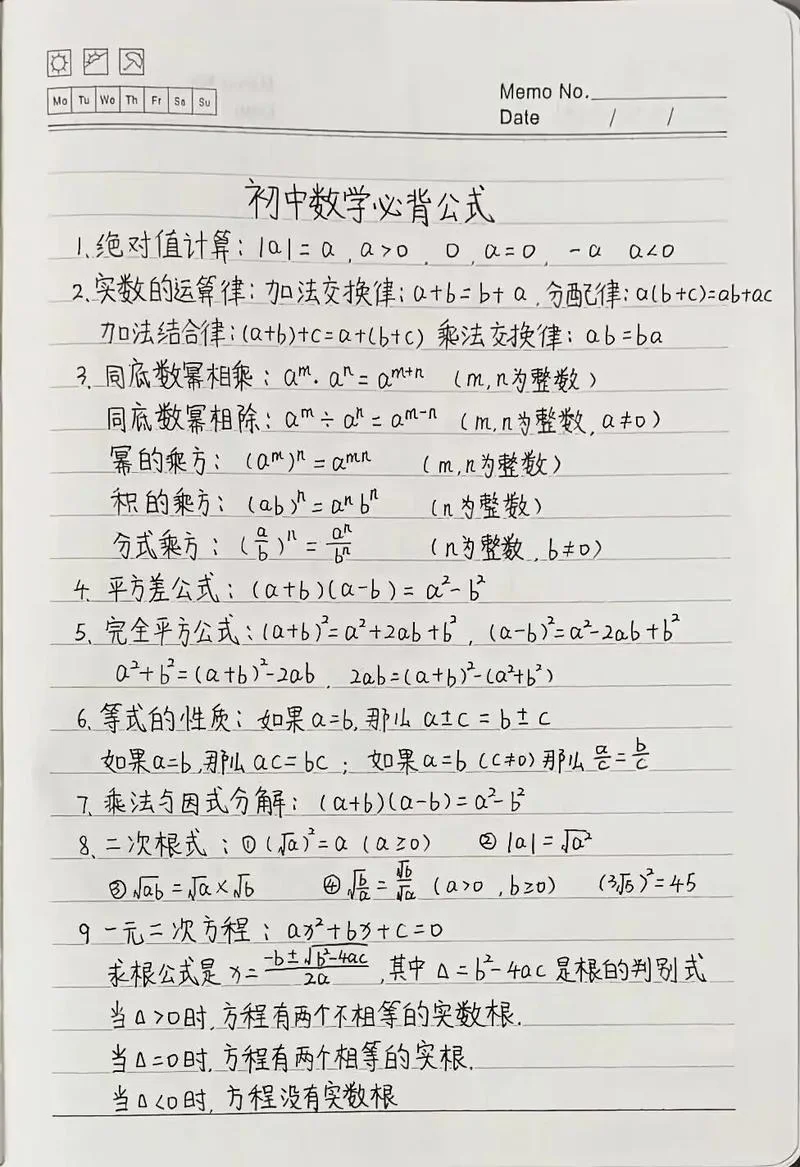 Mo Tu We Th Fr Sa Su
Memo No.
Date / /
初中数学必背公式
1、绝对值计算：|a|=a，a>0，0，a=0，-a a<0
2、实数的运算律：加法交换律：a+b=b+a，分配律：a(b+c)=ab+ac
加法结合律：(a+b)+c=a+(b+c) 乘法交换律：ab=ba
3、同底数幂相乘：aᵐ·aⁿ=aᵐ⁺ⁿ （m,n为整数）
同底数幂相除：aᵐ÷aⁿ=aᵐ⁻ⁿ （m,n为整数，a≠0）
幂的乘方：(aᵐ)ⁿ=aᵐⁿ （m,n为整数）
积的乘方：(ab)ⁿ=aⁿbⁿ （n为整数）
分式乘方：(a/b)ⁿ=aⁿ/bⁿ （n为整数，b≠0）
4、平方差公式：(a+b)(a-b)=a²-b²
5、完全平方公式：(a+b)²=a²+2ab+b²，(a-b)²=a²-2ab+b²
a²+b²=(a+b)²-2ab，2ab=(a+b)²-(a²+b²)
6、等式的性质：如果a=b，那么a±c=b±c
如果a=b，那么ac=bc；如果a=b（c≠0）那么a/c=b/c
7、乘法与因式分解：(a+b)(a-b)=a²-b²
8、二次根式：①(√a)²=a（a≥0） ②|a|=√a²
③√ab=√a×√b ④√(b/a)=√b/√a（a>0，b≥0） (3√5)²=45
9 一元二次方程：ax²+bx+c=0
求根公式是x=(-b±√(b²-4ac))/2a，其中Δ=b²-4ac是根的判别式
当Δ>0时，方程有两个不相等的实数根.
当Δ=0时，方程有两个相等的实根.
当Δ<0时，方程没有实数根